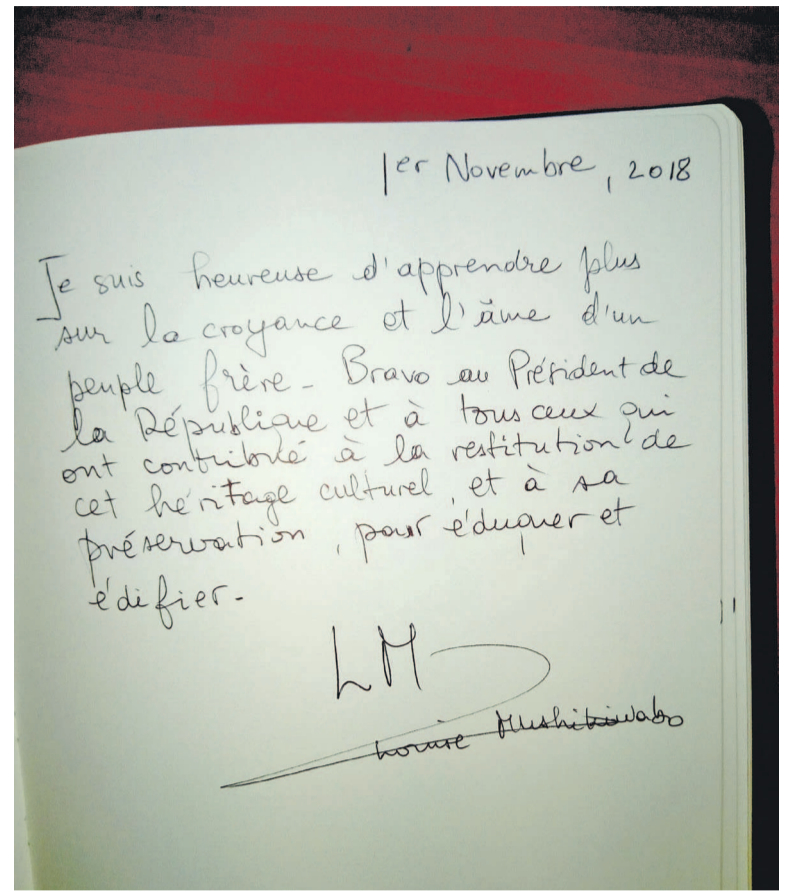 1er Novembre, 2018
Je suis heureuse d'apprendre plus
sur la croyance et l'âme d'un
peuple frère - Bravo au Président de
la République et à tous ceux qui
ont contribué à la restitution de
cet héritage culturel, et à sa
préservation, pour éduquer et
édifier -
LM
Louise Mushikiwabo